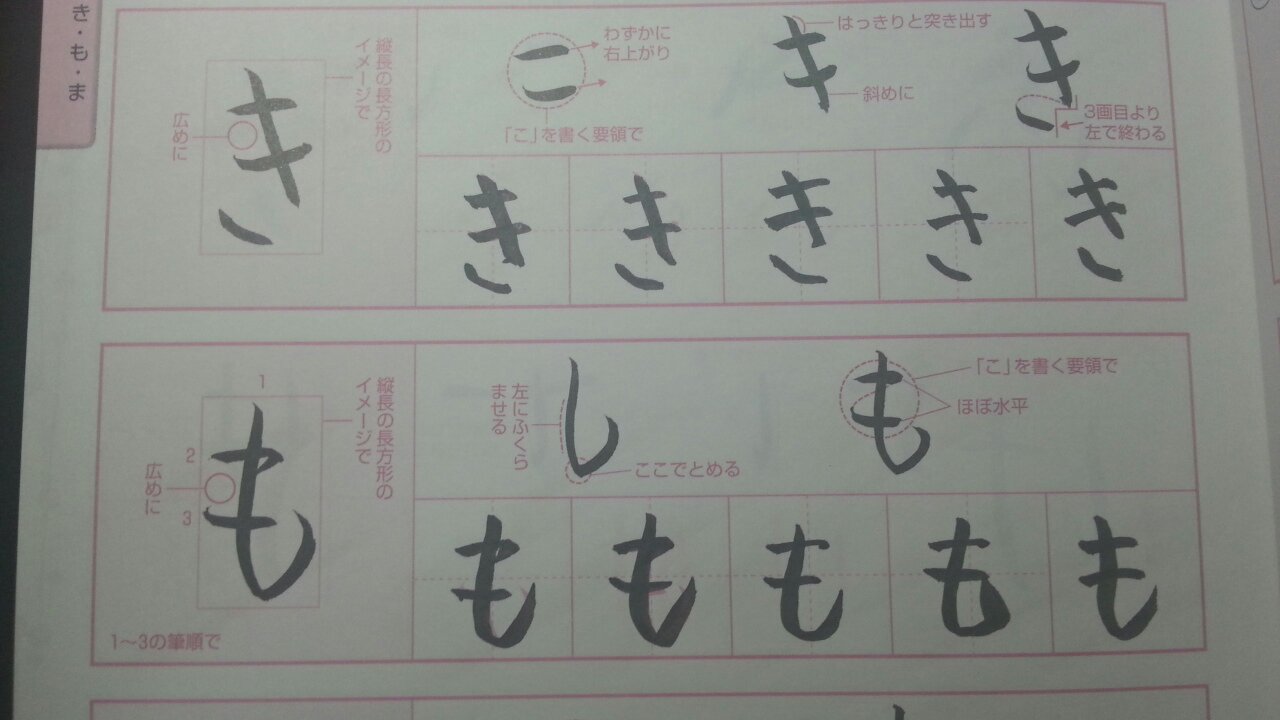 き・も・ま
縦長の長方形の
イメージで
広めに
き
こ
わずかに
右上がり
「こ」を書く要領で
はっきりと突き出す
斜めに
き
3画目より
左で終わる
き き き き き
縦長の長方形の
イメージで
1
2
3
広めに
も
1〜3の筆順で
左にふくら
ませる
し
ここでとめる
も
「こ」を書く要領で
ほぼ水平
も も も も も